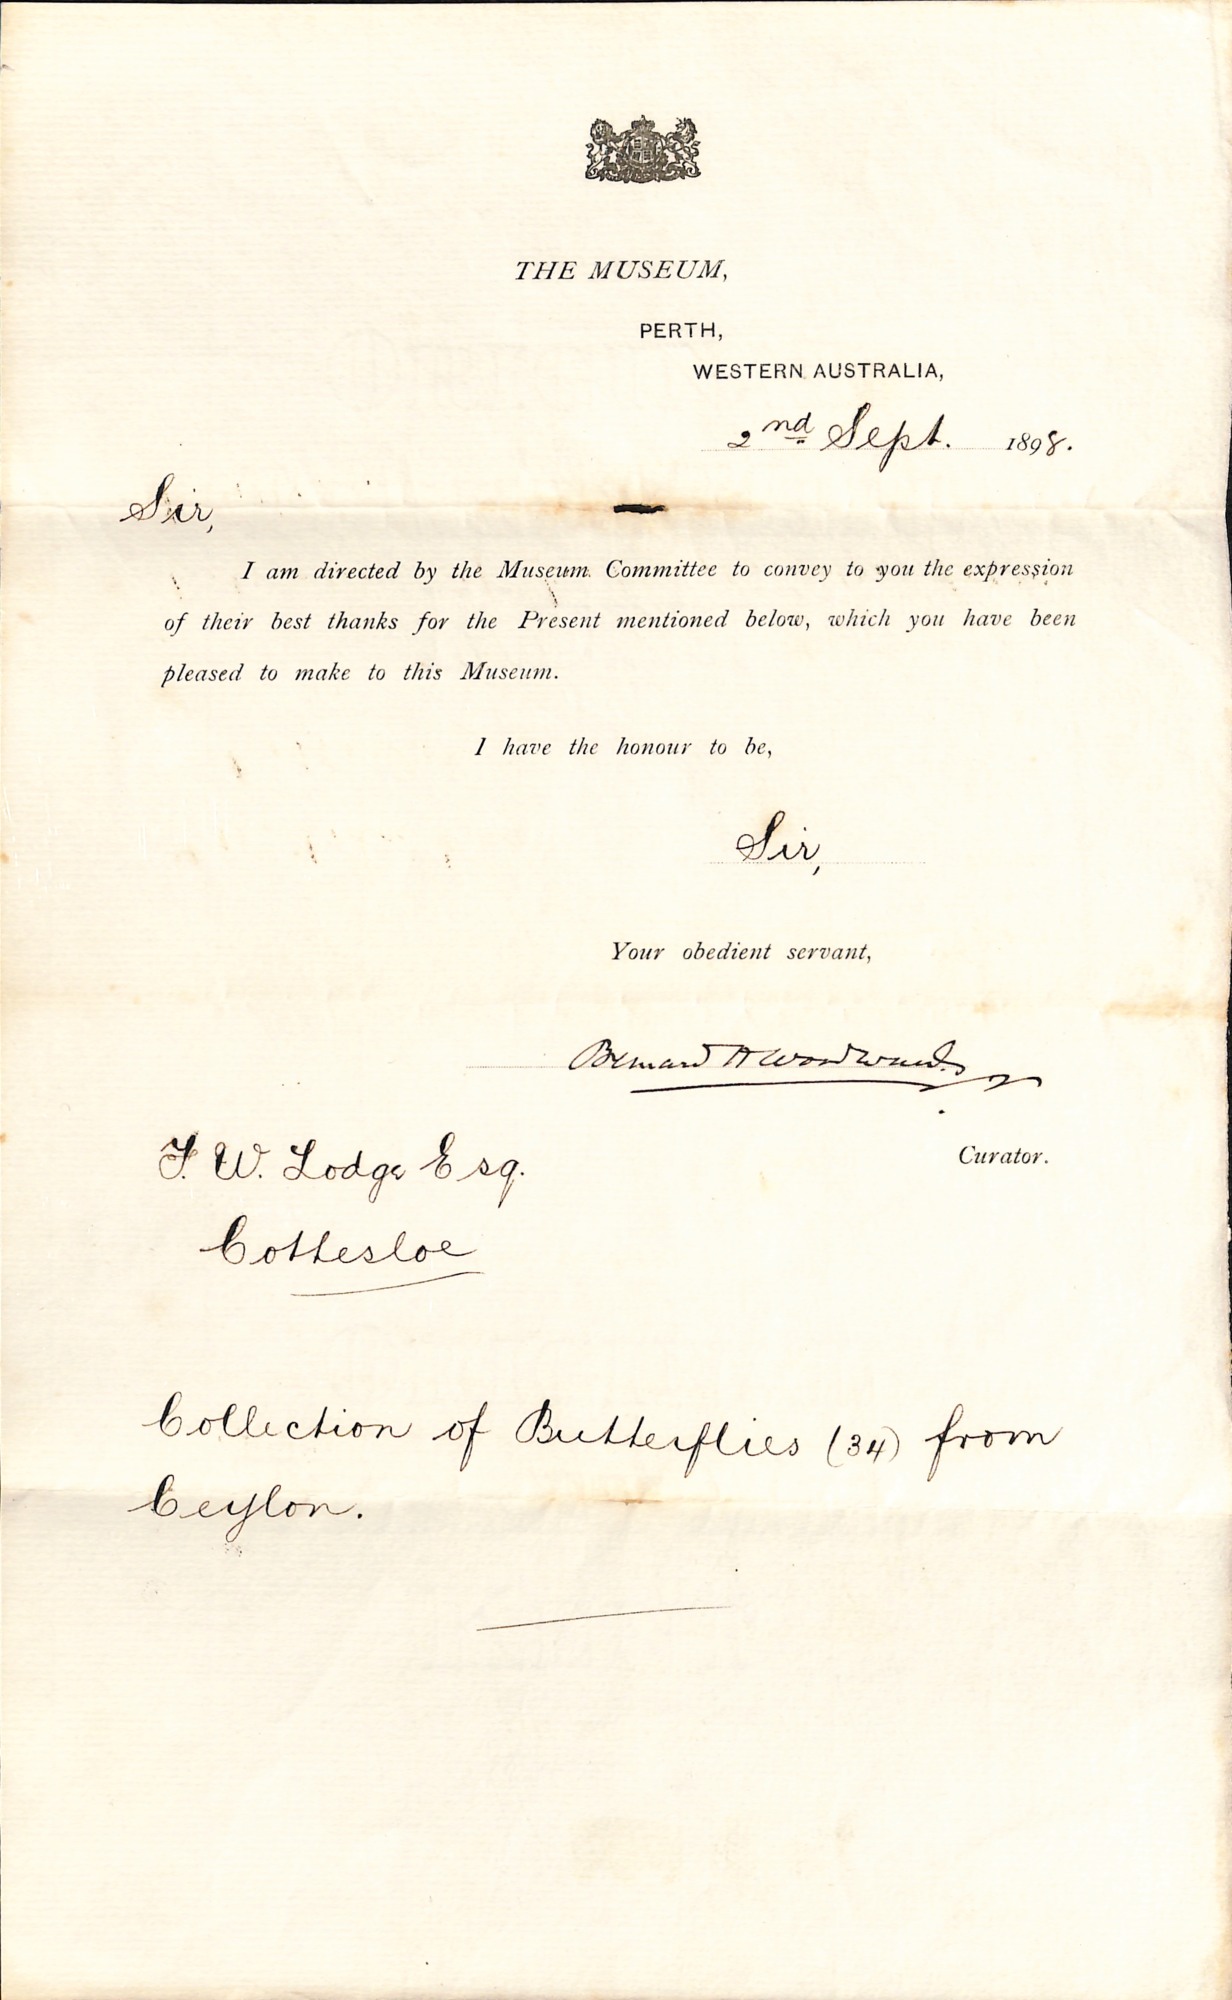 THE MUSEUM,
PERTH,
WESTERN AUSTRALIA,
2nd Sept. 1898.
Sir,
I am directed by the Museum Committee to convey to you the expression
of their best thanks for the Present mentioned below, which you have been
pleased to make to this Museum.
I have the honour to be,
Sir,
Your obedient servant,
Bernard H Woodward.
Curator.
F. W. Lodge Esq.
Cottesloe
Collection of Butterflies (34) from
Ceylon.